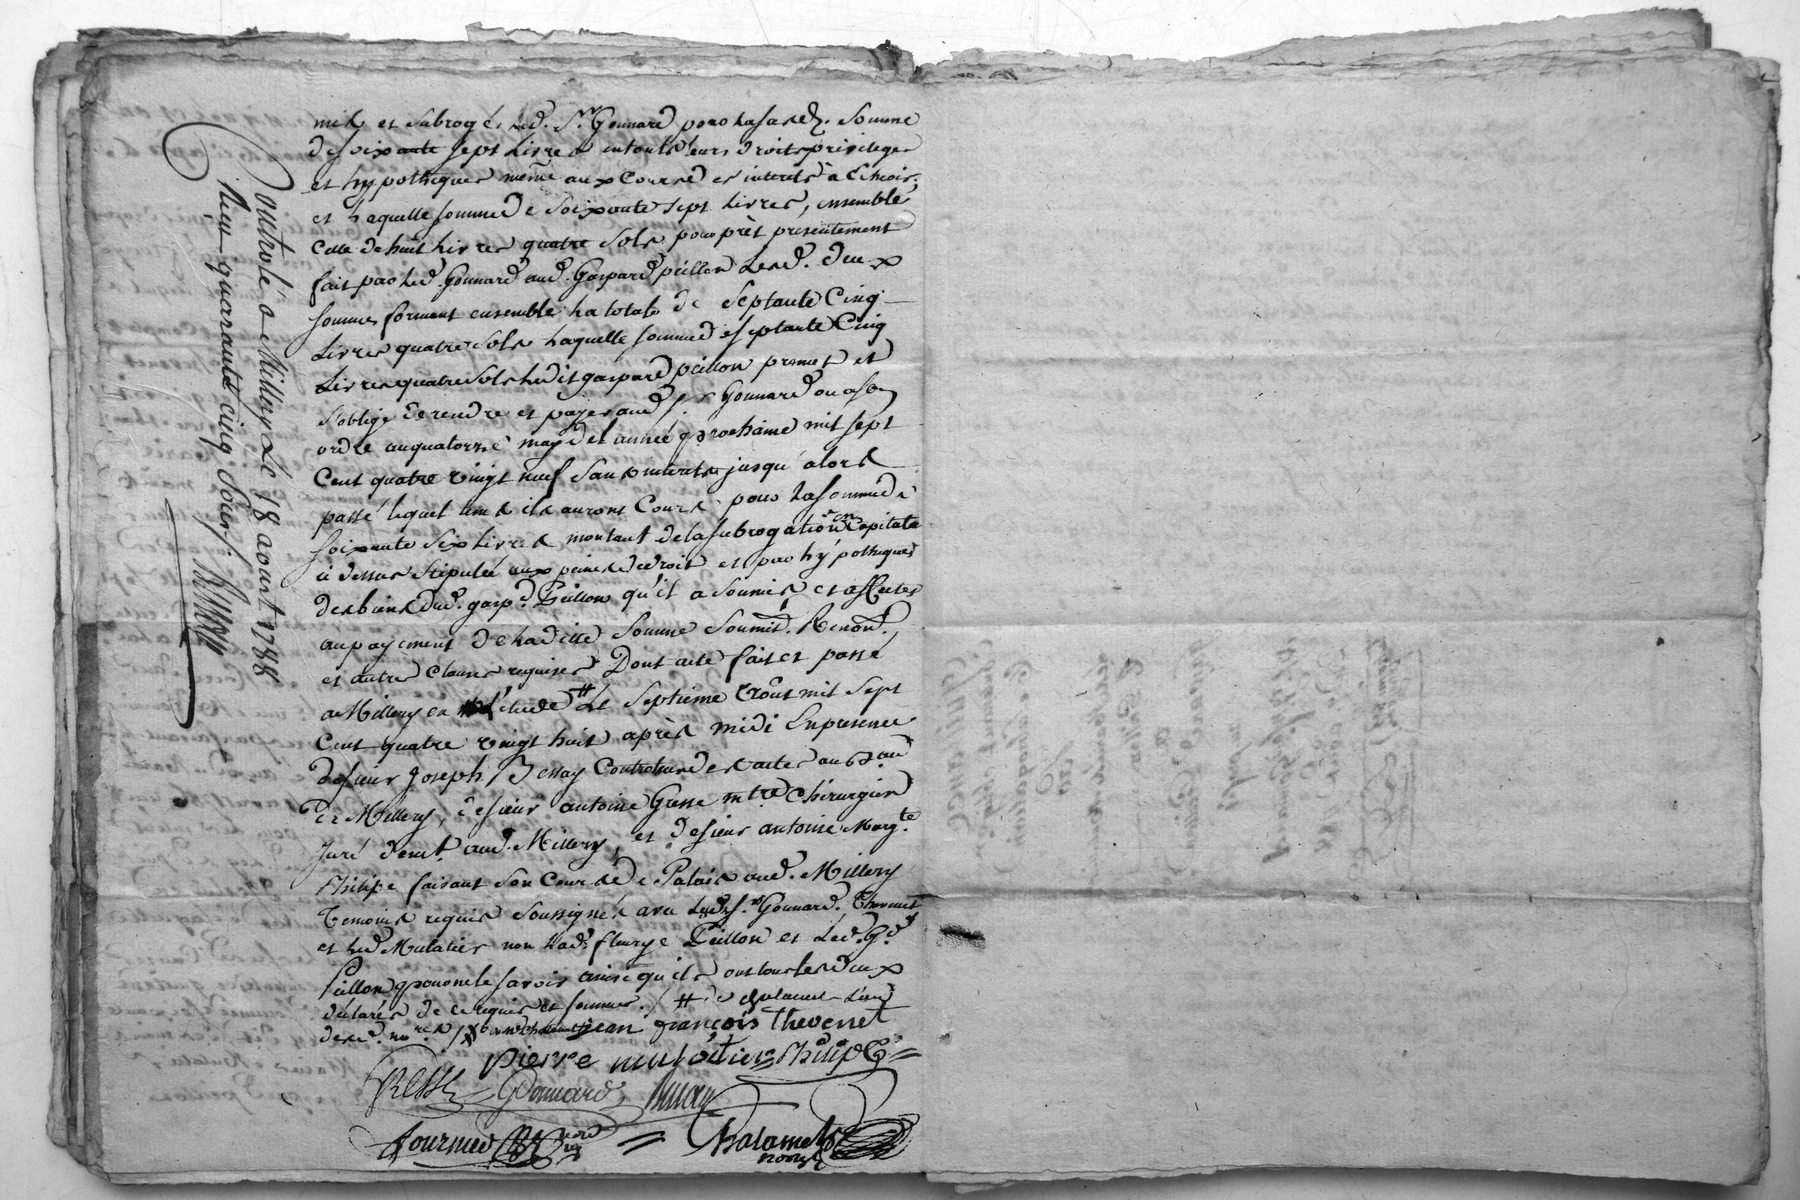 mis et subrogé led. Sr. Gonnard pour la susd. somme
de soixante sept Livres en touts leurs droits privileges
et hypotheques même aux Cours des interets à Echeoir,
et Laquelle somme de soixante sept Livres, ensemble
Celle de huit Livres quatre sols pour prêt presentement
fait par Led. Gonnard aud. Gaspard peillon Lesd. deux
sommes forment ensemble La totale de septante Cinq
Livres quatre sols Laquelle somme de septante Cinq
Livres quatre sols Ledit gaspard peillon promet et
s'oblige de rendre et payer aud. Sr. Gonnard ou a son
ordre au quatorze may de l'année prochaine mil sept
Cent quatre vingt neuf sans interets jusqu'alors
passé lequel tems ils auront Cours pour La somme de
soixante six Livres montant de la subrogation en Capital
ci dessus stipulée aux peines de droit et par hypotheques
des biens dud. gasp.d Peillon qu'il a soumis et affectés
au payement de Laditte somme soumis.t Renon.t
et autres clauses requises Dont acte fait et passé
a Millery en L'étude # Le septième aoust mil sept
Cent quatre vingt huit après midi En presence
de sieur Joseph Bessay Controleur des actes au Bau
de Millery, de sieur antoine Gresse mtre Chirurgien
Juré demt. aud. Millery, et de sieur antoine Marg.te
Philipe faisant son Cours de Palais aud. Millery
Temoins requis soussignés avec Led. Sr. Gonnard. Thevenet
et Led. Mulatier non Lad. fleurye Peillon et Led. G.d
Peillon pour ne le savoir ainsi qu'ils ont tous les deux
déclarés de ce requis et sommés. / # de Chalamel L'un
desd. no.res / jean françois Thevenet
pierre mulatier Philipe
GRESSE Gonnard Bessay
fournier
Chalamel
nore
Controlé a Millery Le 18 aoust 1788
Reçu quarante cinq sous. Bessay